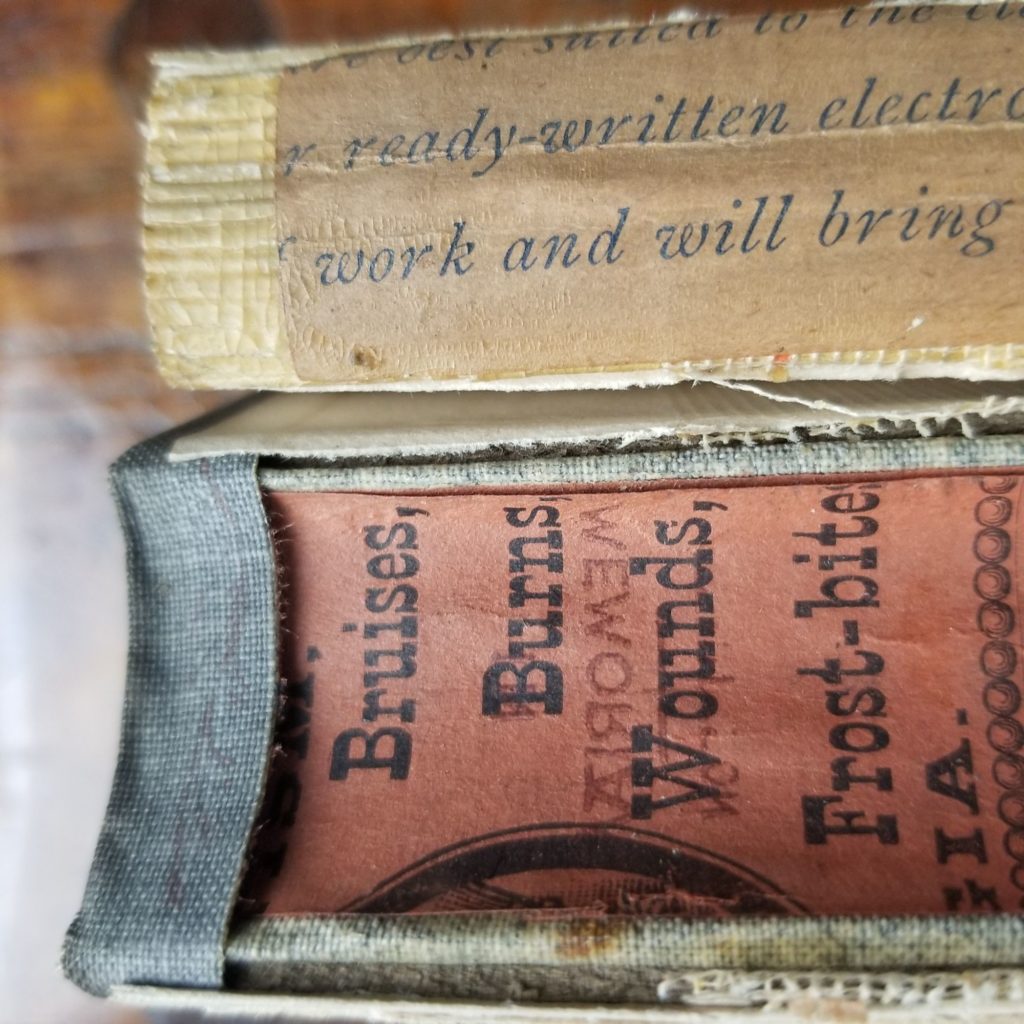 best suited to the
ready-written electro
work and will bring
Bruises,
Burns,
Wounds,
Frost-bite
IA.
MEMORIA